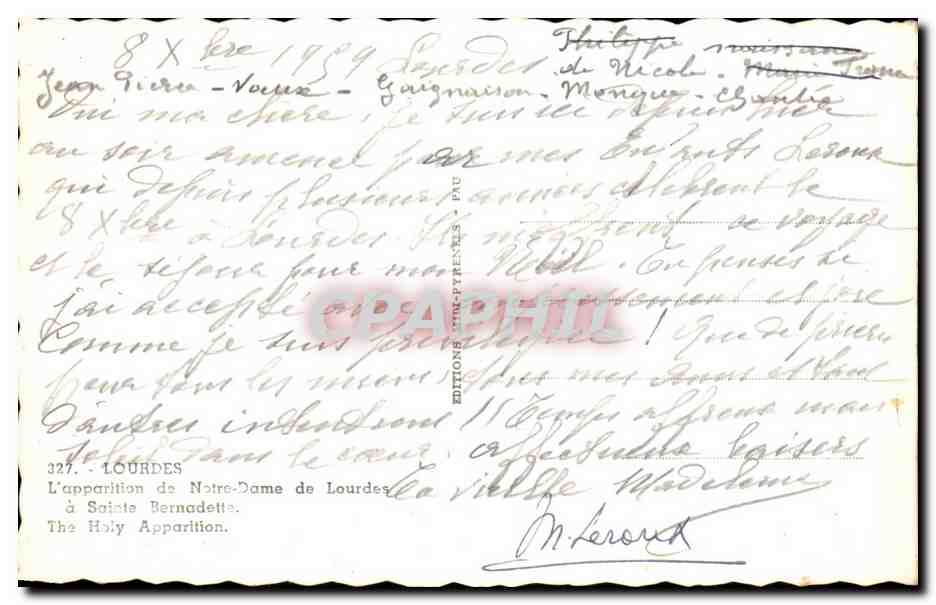 8 Xbre 1959 Lourdes
Philippe naissance
de Nicole - Marie France
Jean Pierre - Vaux - Gaignaison - Monique - Chantée
Oui ma chère, je suis ici depuis hier
au soir amenée par mes Enfants Leroux
qui depuis plusieurs années célèbrent le
8 Xbre à Lourdes. Ils m'offrent ce voyage
et le séjour pour mon Noël. Tu penses si
j'ai accepté avec et joie
Comme je suis ! Que de prières
pour tous les miens, tous mes amis et tant
d'autres intentions !! Temps affreux mais
soleil dans le cœur. affectueux baisers
Ta vieille Madeleine
M. Leroux
EDITIONS MIDI-PYRENEES - PAU
CPAPHIL
327. - LOURDES
L'apparition de Notre-Dame de Lourdes
à Sainte Bernadette.
The Holy Apparition.